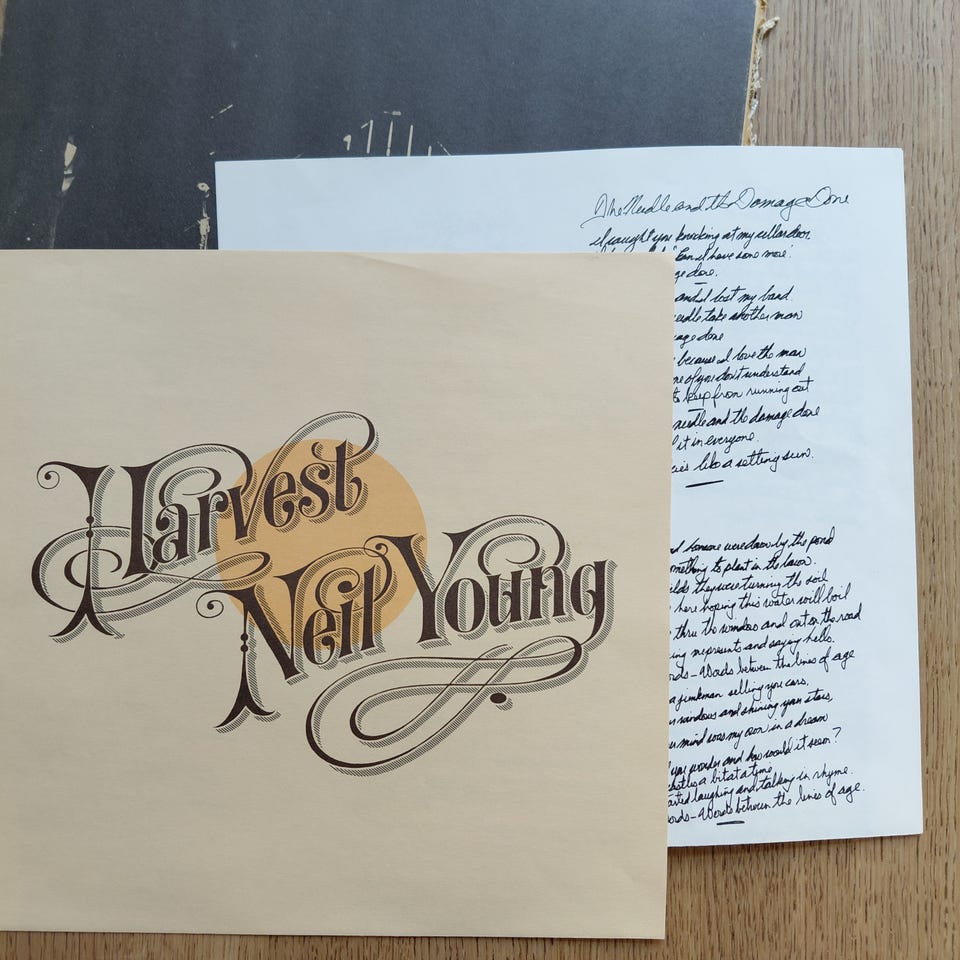 Harvest
Neil Young
The Needle and the Damage Done
I caught you knocking at my cellar door
Can I have some more
ge done.
and I lost my band.
eedle take another man
mage done
because I love the man
me of you don't understand
to keep from running out
needle and the damage done
l it in everyone.
kie's like a setting sun.
nd someone were down by the pond
omething to plant in the lawn.
elds they were turning the soil
here hoping this water will boil
thru the windows and out on the road
ing me presents and saying hello.
ords - Words between the lines of age
a junkman selling you cars,
r windows and shining your stars,
ur mind was my own in a dream
you wonder and how would it seem?
castles a bit at a time
arted laughing and talking in rhyme.
ords - Words between the lines of age.